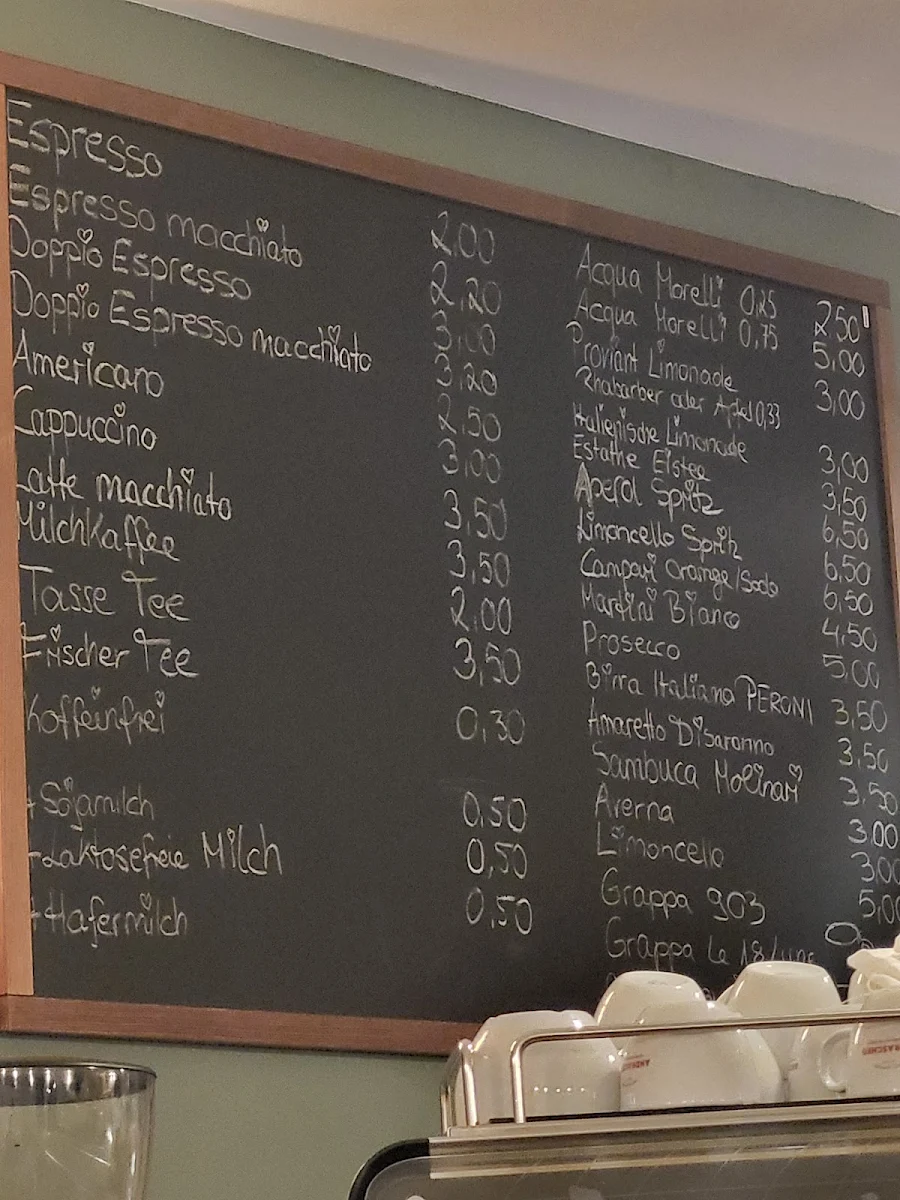 Espresso 2,00
Espresso macchiato 2,20
Doppio Espresso 3,00
Doppio Espresso macchiato 3,20
Americano 2,50
Cappuccino 3,00
Latte macchiato 3,50
Milchkaffee 3,50
Tasse Tee 2,00
Frischer Tee 3,50
Koffeinfrei 0,30
+ Sojamilch 0,50
+ Laktosefreie Milch 0,50
+ Hafermilch 0,50
Acqua Morelli 0,25 2,50
Acqua Morelli 0,75 5,00
Proviant Limonade 3,00
Rhabarber oder Apfel 0,33
Italienische Limonade 3,00
Estathe Eistee 3,50
Aperol Spritz 6,50
Limoncello Spritz 6,50
Campari Orange/Soda 6,50
Martini Bianco 4,50
Prosecco 5,00
Birra Italiana PERONI 3,50
Amaretto Disaronno 3,50
Sambuca Molinari 3,50
Averna 3,00
Limoncello 3,00
Grappa 903 5,00
Grappa Le 18 lune